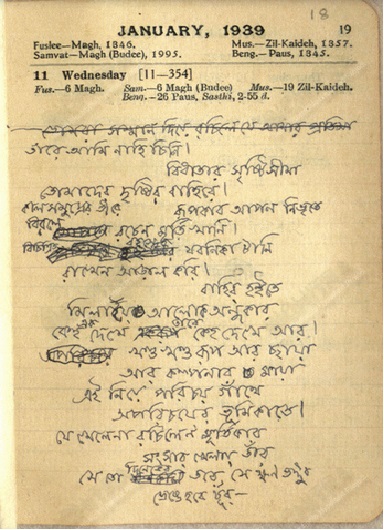 18
JANUARY, 1939 19
Fuslee—Magh, 1346. Mus.—Zil-Kaideh, 1357.
Samvat—Magh (Budee), 1995. Beng.—Paus, 1345.
11 Wednesday [11—354]
Fus.—6 Magh. Sam.—6 Magh (Budee) Mus.—19 Zil-Kaideh.
Beng.—26 Paus, Sasthi, 2-55 d.
তোমরা সম্মান দিয়ে রচিলে যে আমার প্রতিমা
তারে আমি নাহি চিনি।
বিধাতার সৃষ্টিসীমা
তোমাদের দৃষ্টির বাহিরে।
কালসমুদ্রের তীরে
রূপকার আপন নিভৃতে
বিরলে রচেন মূর্তিখানি।
বিচিত্রিত যবনিকা টানি
রাখেন আড়াল করি।
বাহির হইতে
মিলায়ে আলোক অন্ধকার
কেহ এক দেখে তারে কেহ দেখে আর।
খণ্ড খণ্ড রূপ আর ছায়া
আর কল্পনার মায়া
এই নিয়ে পরিচয় গাঁথে
অপরিচয়ের ভূমিকাতে।
যে খেলেনা রচিলেন মূর্তিকার
সংসার খেলার তাঁর